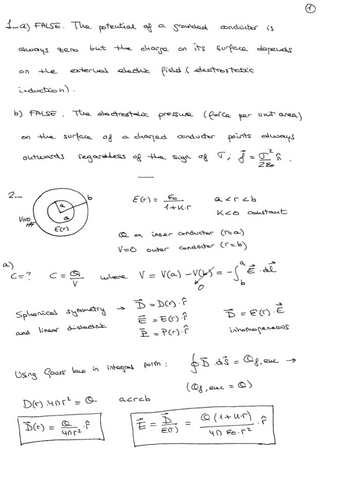 ①
1._a) FALSE. The potential of a grounded conductor is
always zero but the charge on its surface depends
on the external electric field (electrostatic
induction).
b) FALSE. The electrostatic pressure (force per unit area)
on the surface of a charged conductor points always
outwards regardless of the sign of σ; f⃗ = σ²/2ε₀ r̂.
2._
V=0
a
b
E(r)
ε(r) = ε₀/(1+k·r) a<r<b
k<0 constant
Q on inner conductor (r=a)
V=0 outer conductor (r=b)
a)
C=? C = Q/V where V = V(a) - V(b) = -∫_b^a E⃗·dl⃗
0
Spherical symmetry → D⃗ = D(r)·r̂
and linear dielectric E⃗ = E(r)·r̂
P⃗ = P(r)·r̂
D⃗ = ε(r)·E⃗
inhomogeneous
Using Gauss law in integral form: ∮D⃗·dS⃗ = Q_f,enc →
(Q_f,enc = Q)
D(r)·4πr² = Q a<r<b
D⃗(r) = Q/4πr² · r̂
E⃗ = D⃗/ε(r) = Q(1+k·r)/4πε₀·r² · r̂